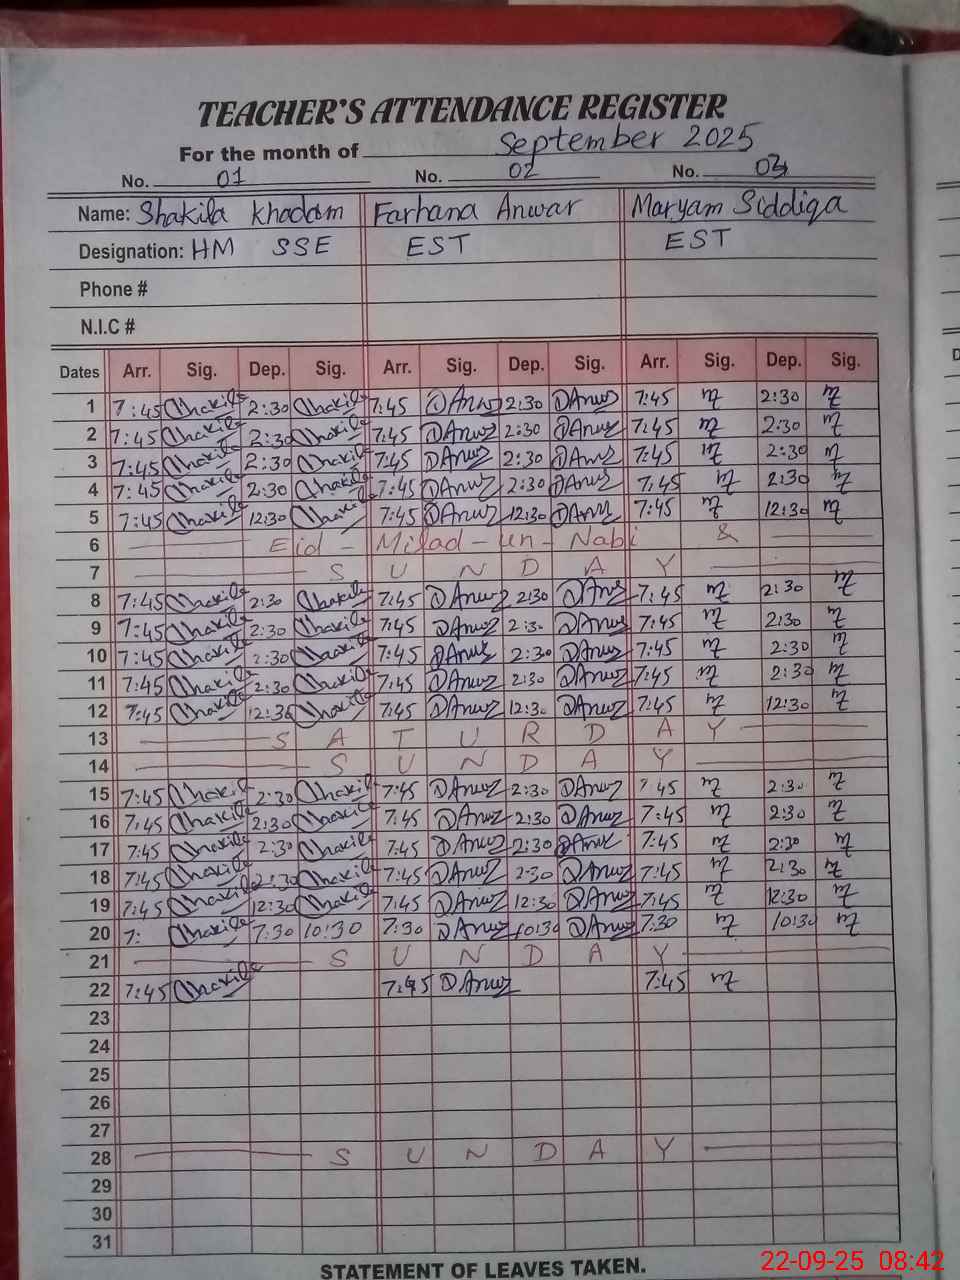 TEACHER'S ATTENDANCE REGISTER
For the month of September 2025
No. 01 No. 02 No. 03
Name: Shakila Khadam Farhana Anwar Maryam Siddiqa
Designation: HM SSE EST EST
Phone #
N.I.C #
Dates Arr. Sig. Dep. Sig. Arr. Sig. Dep. Sig. Arr. Sig. Dep. Sig.
1 7:45 Shakila 2:30 Shakila 7:45 Anwar 2:30 Anwar 7:45 2:30
2 7:45 Shakila 2:30 Shakila 7:45 Anwar 2:30 Anwar 7:45 2:30
3 7:45 Shakila 2:30 Shakila 7:45 Anwar 2:30 Anwar 7:45 2:30
4 7:45 Shakila 2:30 Shakila 7:45 Anwar 2:30 Anwar 7:45 2:30
5 7:45 Shakila 12:30 Shakila 7:45 Anwar 12:30 Anwar 7:45 12:30
6 Eid - Milad - un - Nabi &
7 S U N D A Y
8 7:45 Shakila 2:30 Shakila 7:45 Anwar 2:30 Anwar 7:45 2:30
9 7:45 Shakila 2:30 Shakila 7:45 Anwar 2:30 Anwar 7:45 2:30
10 7:45 Shakila 2:30 Shakila 7:45 Anwar 2:30 Anwar 7:45 2:30
11 7:45 Shakila 2:30 Shakila 7:45 Anwar 2:30 Anwar 7:45 2:30
12 7:45 Shakila 12:30 Shakila 7:45 Anwar 12:30 Anwar 7:45 12:30
13 S A T U R D A Y
14 S U N D A Y
15 7:45 Shakila 2:30 Shakila 7:45 Anwar 2:30 Anwar 7:45 2:30
16 7:45 Shakila 2:30 Shakila 7:45 Anwar 2:30 Anwar 7:45 2:30
17 7:45 Shakila 2:30 Shakila 7:45 Anwar 2:30 Anwar 7:45 2:30
18 7:45 Shakila 2:30 Shakila 7:45 Anwar 2:30 Anwar 7:45 2:30
19 7:45 Shakila 12:30 Shakila 7:45 Anwar 12:30 Anwar 7:45 12:30
20 7: Shakila 7:30 10:30 7:30 Anwar 10:30 Anwar 7:30 10:30
21 S U N D A Y
22 7:45 Shakila 7:45 Anwar 7:45
23
24
25
26
27
28 S U N D A Y
29
30
31
STATEMENT OF LEAVES TAKEN.
22-09-25 08:42